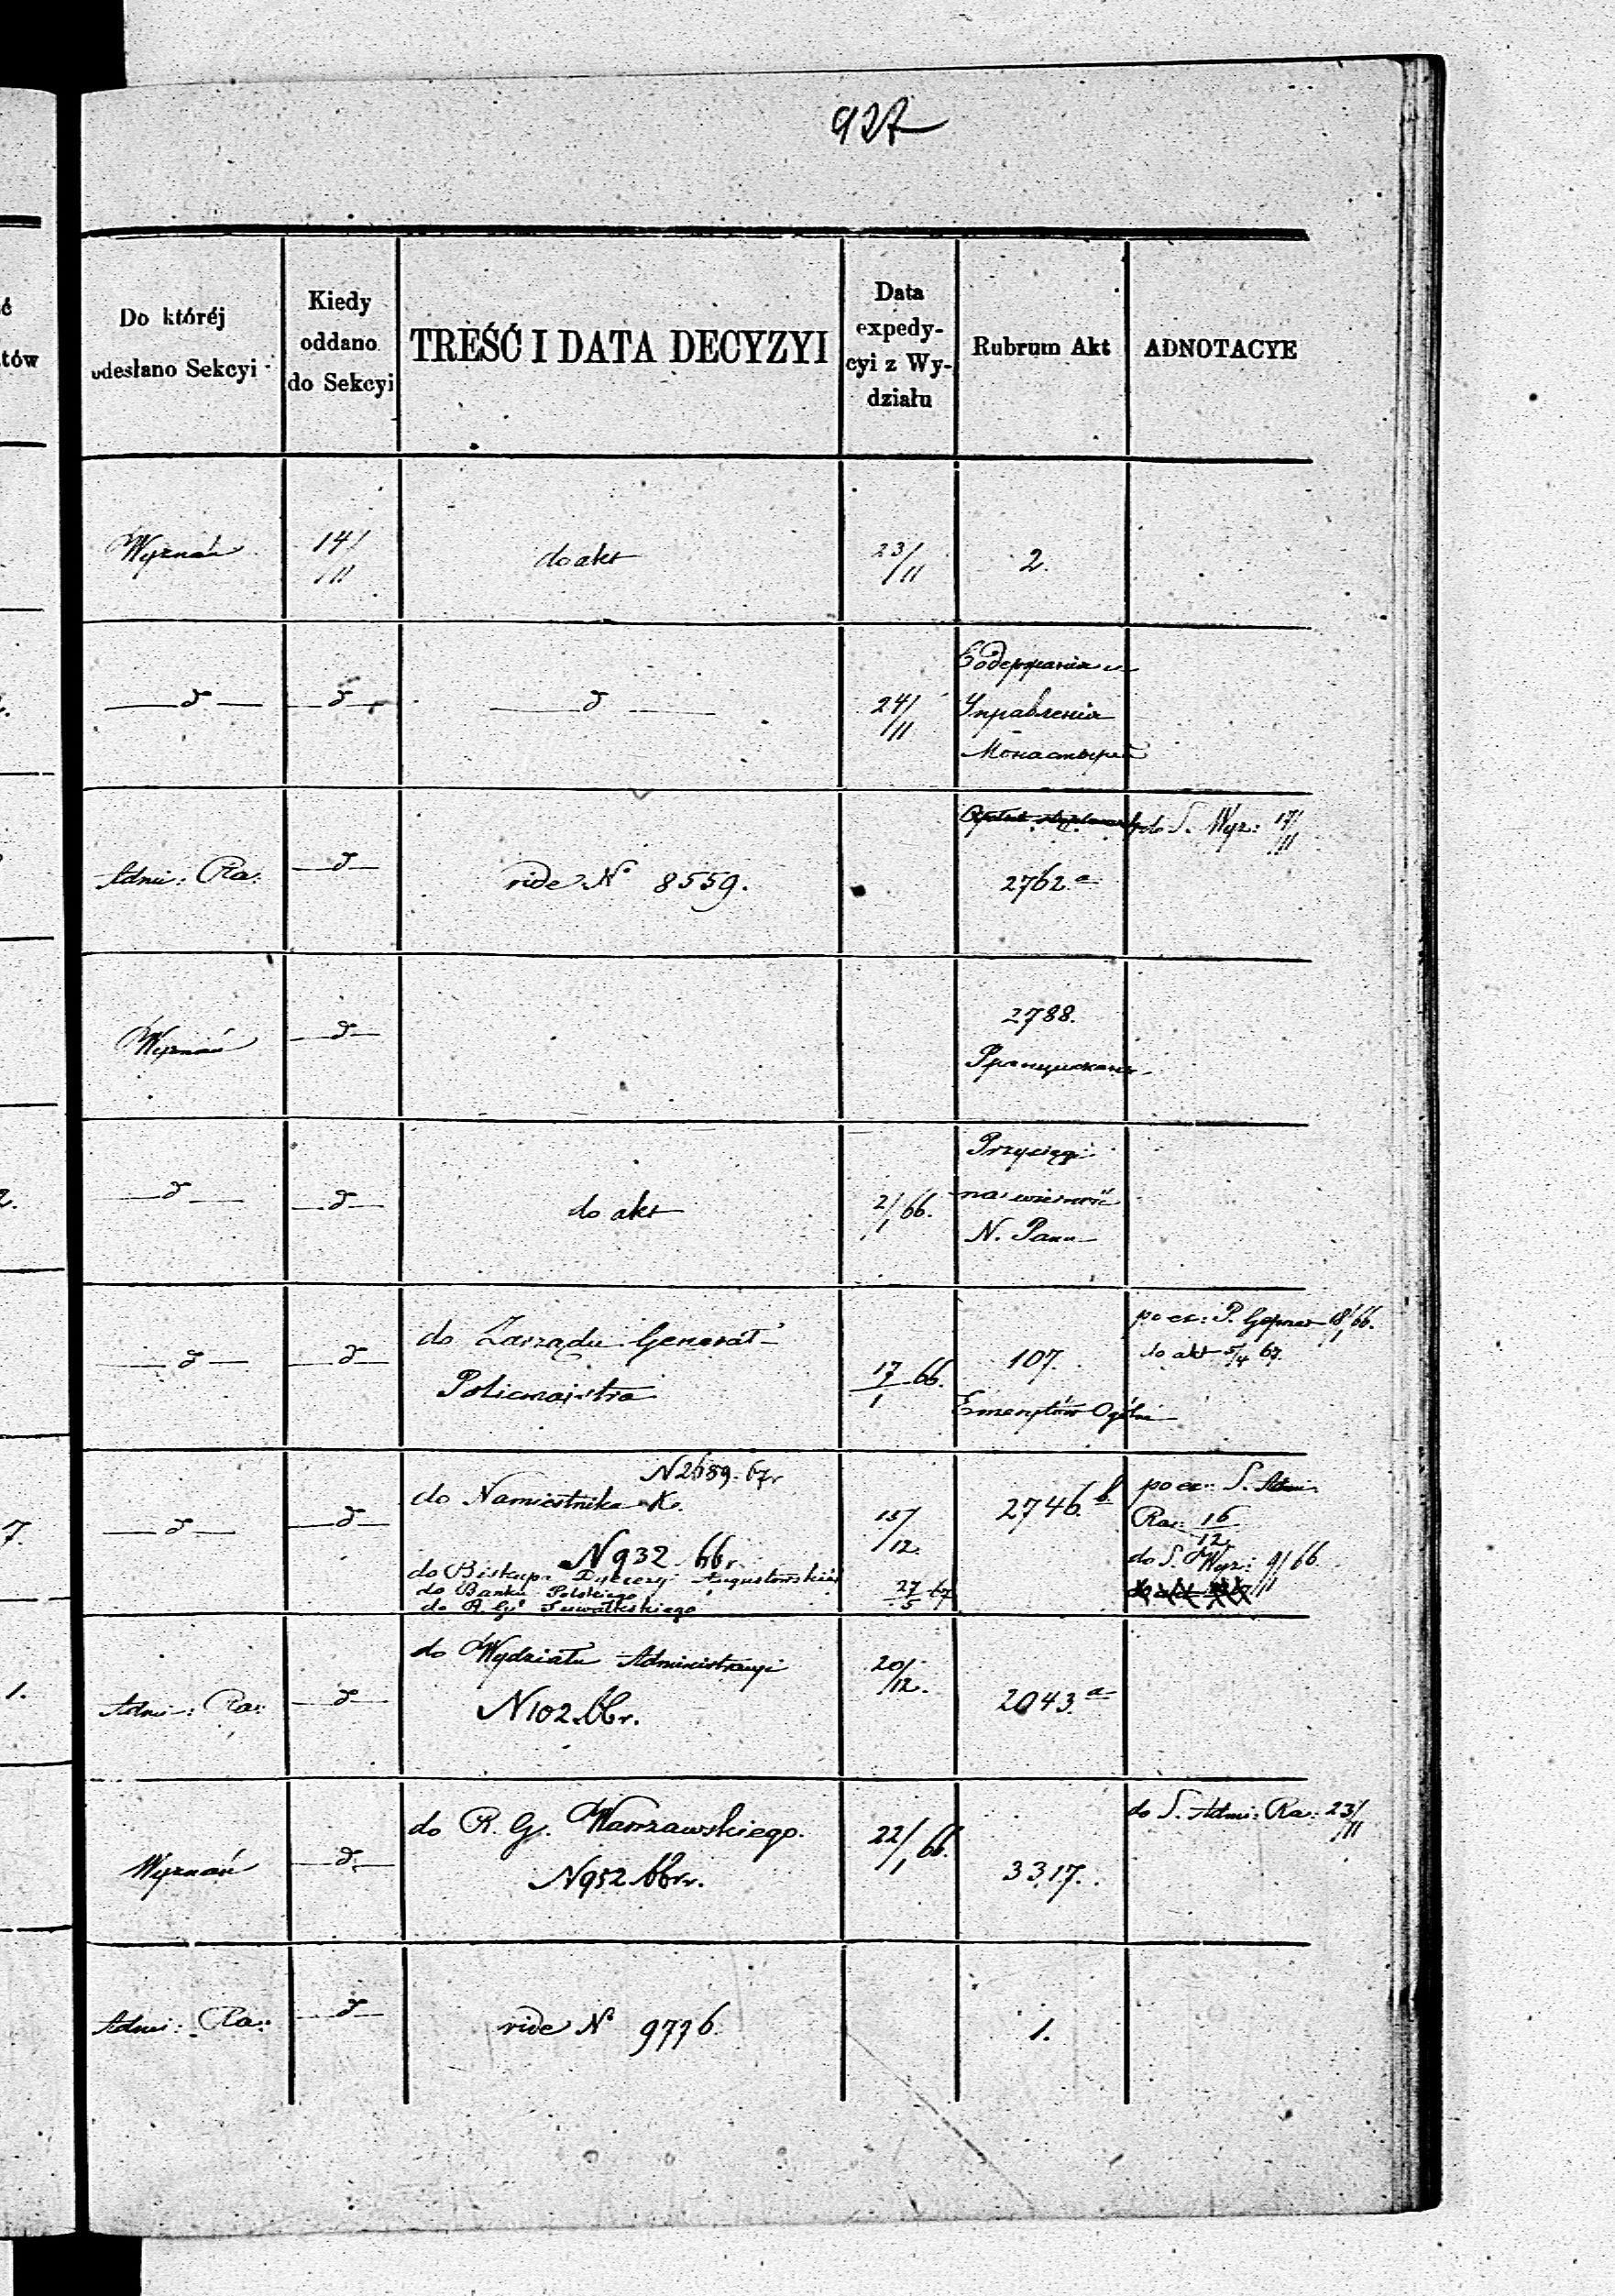 927
Do któréj
odesłano Sekcyi
Kiedy
oddano
do Sekcyi
TREŚĆ I DATA DECYZYI
Data
expedy-
cyi z Wy-
działu
Rubrum Akt
ADNOTACYE
Wyznań
14/11
do akt
23/11
2.
d
d
d
24/11
Содержания и
Управления
Монастырей
Admi: Ra:
d
vide N° 8559.
2762.a
do S. Wyz: 17/11
Wyznań
d
2788.
d
d
do akt
2/1 66.
Przysięgi
na wierność
N. Panu
d
d
do Zarządu Generał
Policmajstra
17/1 66.
107.
Emerytów Ogólne
po ex: P. 18/1 66.
do akt 5/4 67.
d
d
N2659. 67r
do Namiestnika K.
N932 66r
do Biskupa Dyecezyi Augustowskiéj
do Banku Polskiego
do R. Gł Suwałkskiego
15/12.
27/5 67
2746.b
po ex: S. Admi:
Ra: 16/12
do S. Wyz: 9/11 66
Admi: Ra:
d
do Wydziału Administracyi
N102.66r.
20/12.
2043.a
Wyznań
d
do R. G. Warszawskiego.
N952.66r.
22/1 66.
3317.
do S. Admi: Ra: 23/11
Admi: Ra:
d
vide N° 9776.
1.
ć
tów
7.
1.